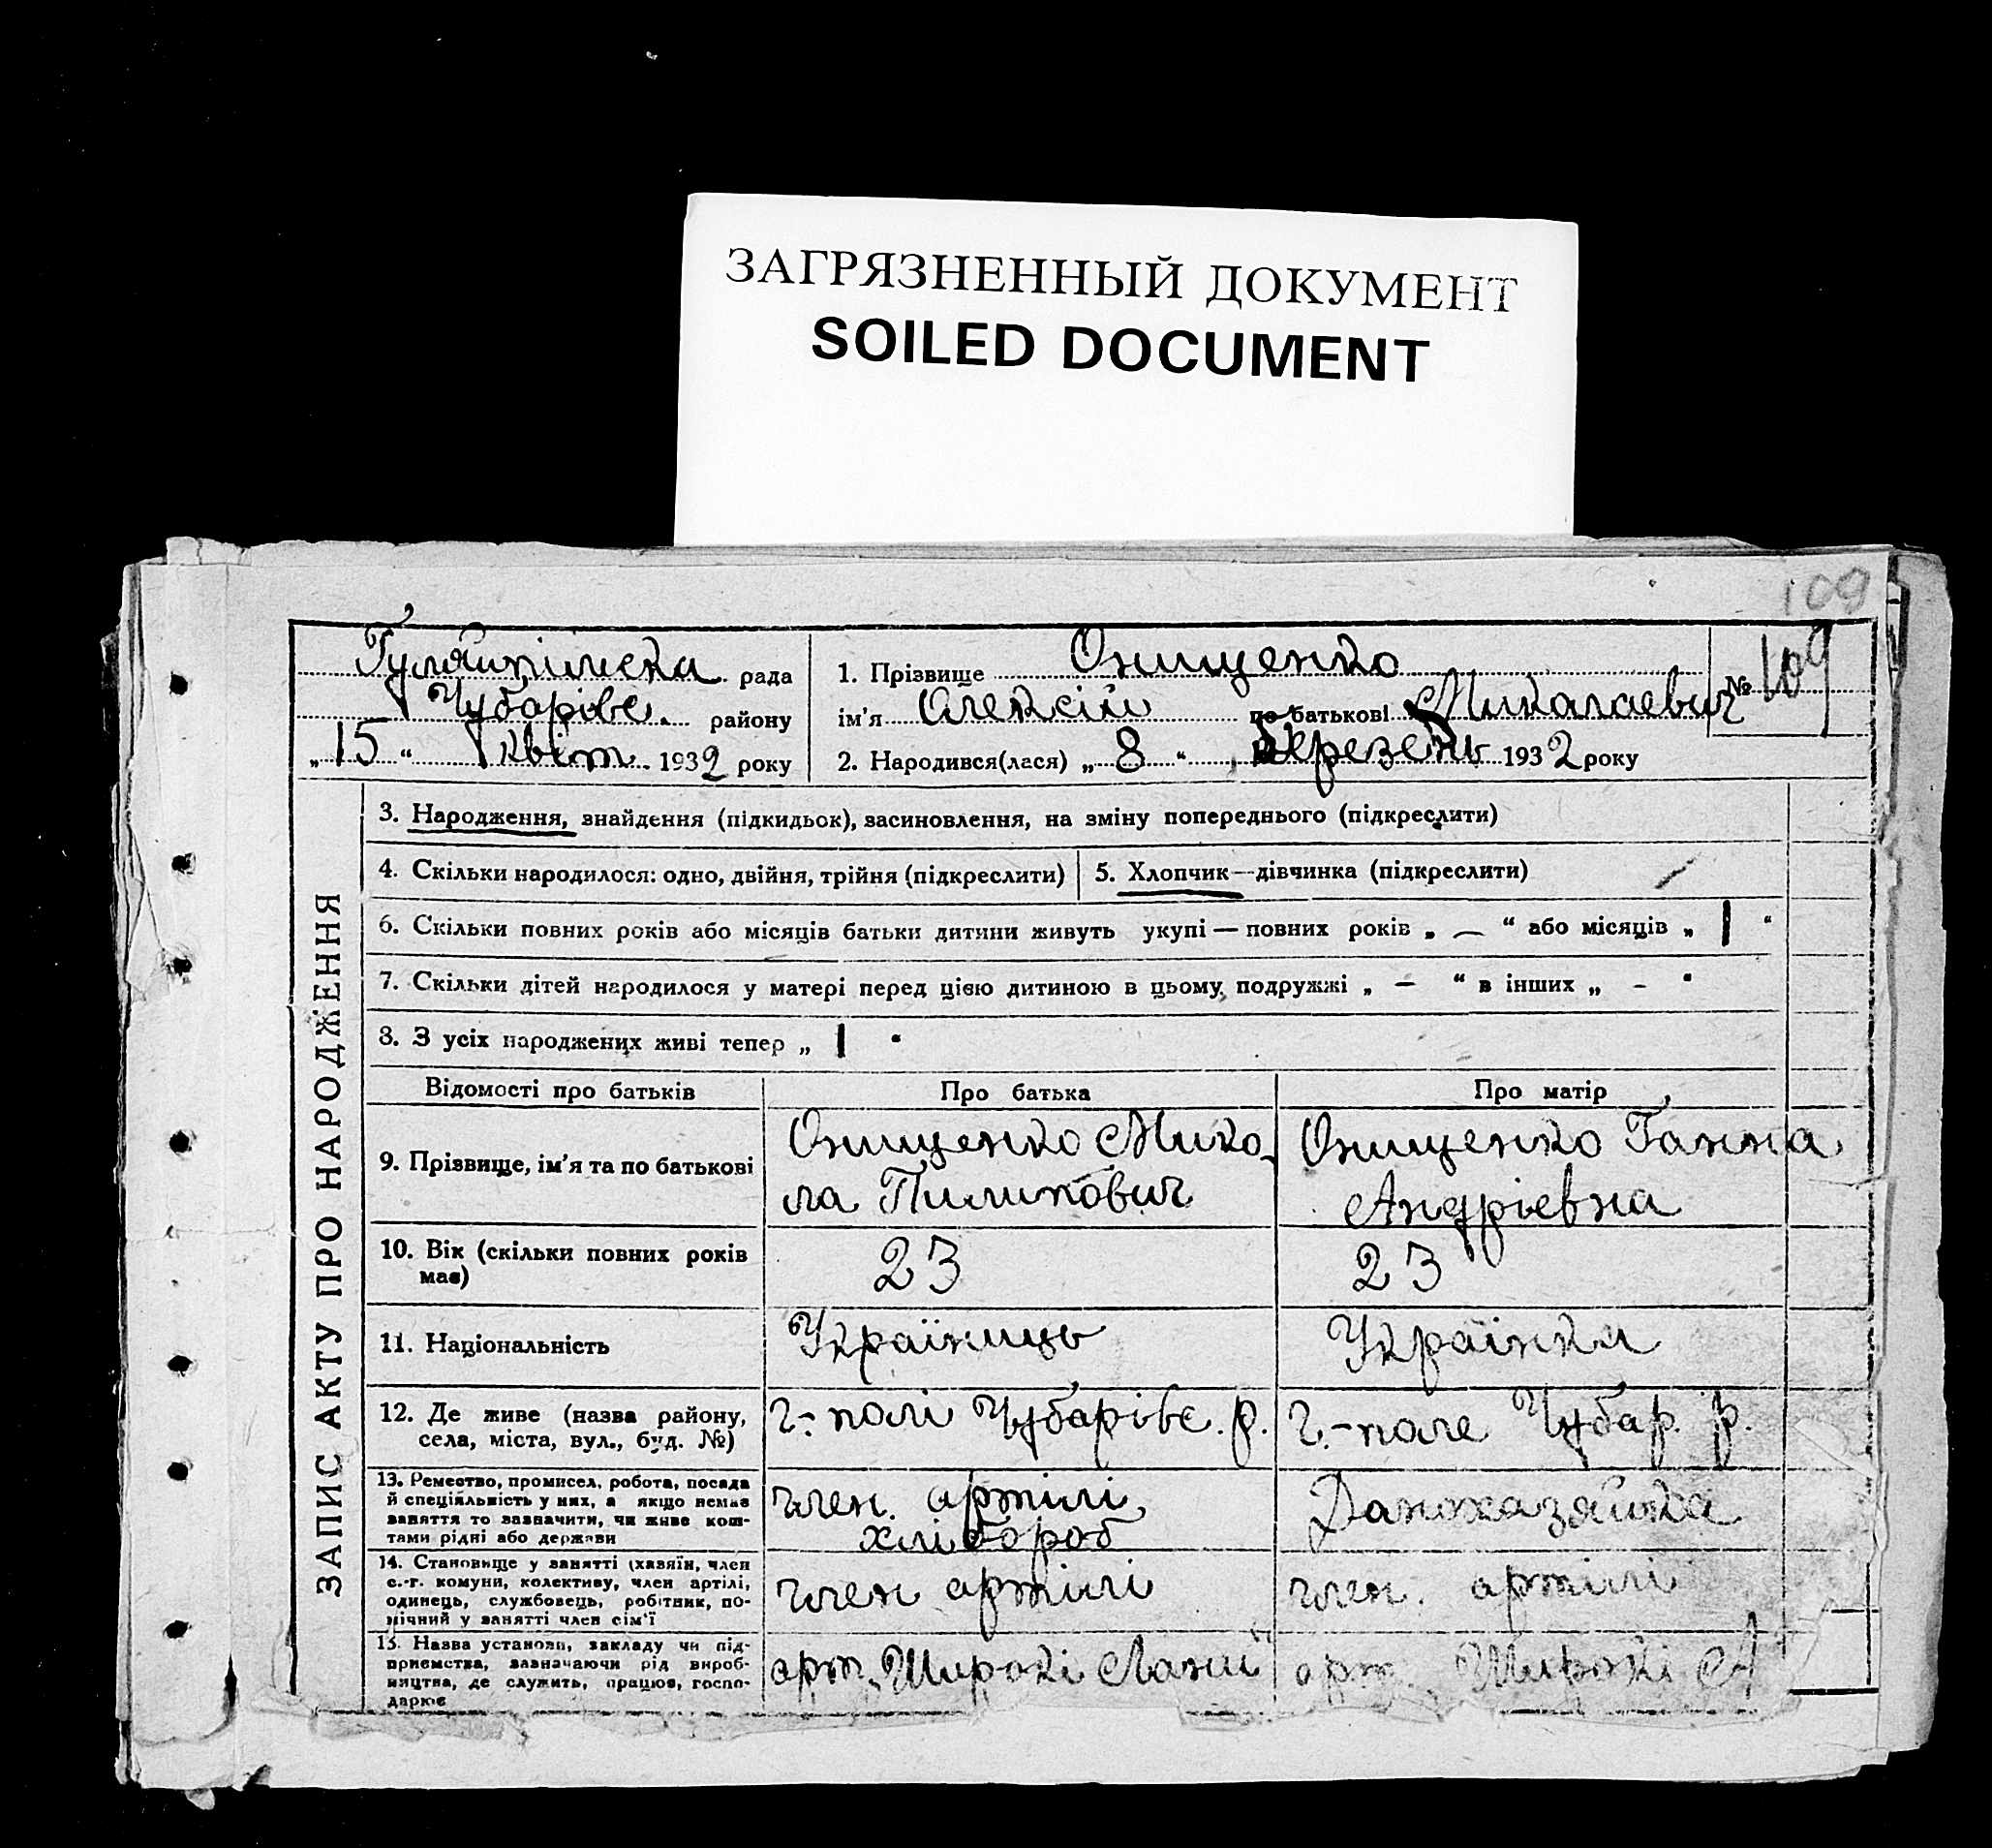 ЗАГРЯЗНЕННЫЙ ДОКУМЕНТ
SOILED DOCUMENT
109
Гуляйпільска рада
Чубарівс. району
„ 15 “ квіт. 1932 року
1. Прізвище Онищенко
ім'я Олексій по батькові Миколаевич
2. Народився(лася) „ 8 “ Березень 1932 року
№ 109
ЗАПИС АКТУ ПРО НАРОДЖЕННЯ
3. Народження, знайдення (підкидьок), засиновлення, на зміну попереднього (підкреслити)
4. Скільки народилося: одно, двійня, трійня (підкреслити)
5. Хлопчик—дівчинка (підкреслити)
6. Скільки повних років або місяців батьки дитини живуть укупі — повних років „ — “ або місяців „ 1 “
7. Скільки дітей народилося у матері перед цією дитиною в цьому подружжі „ — “ в інших „ - “
8. З усіх народжених живі тепер „ 1 “
Відомості про батьків
Про батька
Про матір
9. Прізвище, ім'я та по батькові
Онищенко Мико-
ла Пилипович
Онищенко Ганна
Андріевна
10. Вік (скільки повних років
має)
23
23
11. Національність
Україниць
Українка
12. Де живе (назва району,
села, міста, вул., буд. №)
Г.-полі Чубарівс. р.
Г.-поле Чубар. р.
13. Ремество, промисел, робота, посада
й спеціяльність у них, а якщо немає
заняття то зазначити, чи живе кош-
тами рідні або держави
член. артілі,
хлібороб
Домохазяйка
14. Становище у занятті (хазяїн, член
с.-г. комуни, колективу, член артілі,
одинець, службовець, робітник, по-
мічний у занятті член сім'ї
член артілі
член. артілі
15. Назва установи, закладу чи під-
приємства, зазначаючи рід вироб-
ництва, де служить, працює, госпо-
дарює
арт. „Широкі Лани“
арт. Широкі Л